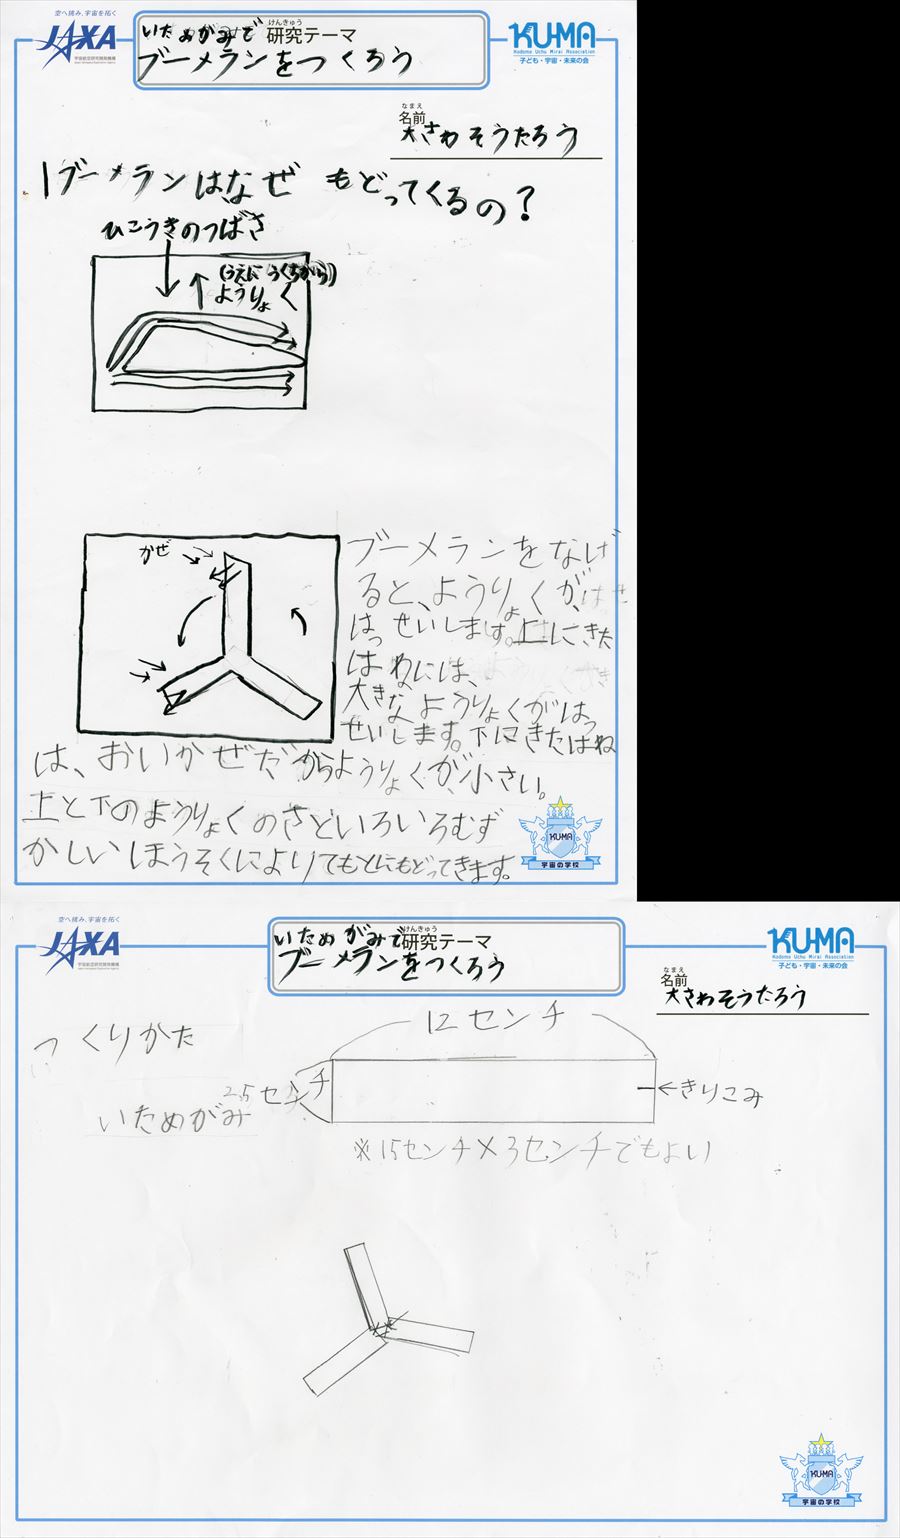 空へ挑み、宇宙を拓く
JAXA
宇宙航空研究開発機構
いためがみで
けんきゅう
研究テーマ
ブーメランをつくろう
KU-MA
Kodomo Uchu Mirai Association
子ども・宇宙・未来の会
なまえ
名前
大さわそうたろう
1ブーメランはなぜ もどってくるの?
ひこうきのつばさ
(うえにうくちから)
ようりょく
かぜ
ブーメランをなげ
ると、ようりょくが、
はっせいします。上にきた
はねには、
大きなようりょくがはっ
せいします。下にきたはね
は、おいかぜだからようりょくが、小さい。
上と下のようりょくのさといろいろむず
かしいほうそくによりてもとにもどってきます。
KUMA
宇宙の学校
空へ挑み、宇宙を拓く
JAXA
宇宙航空研究開発機構
いためがみで
けんきゅう
研究テーマ
ブーメランをつくろう
KU-MA
Kodomo Uchu Mirai Association
子ども・宇宙・未来の会
なまえ
名前
大さわそうたろう
つくりかた
12センチ
2.5センチ
←きりこみ
いためがみ
※15センチ×3センチでもよい
KUMA
宇宙の学校